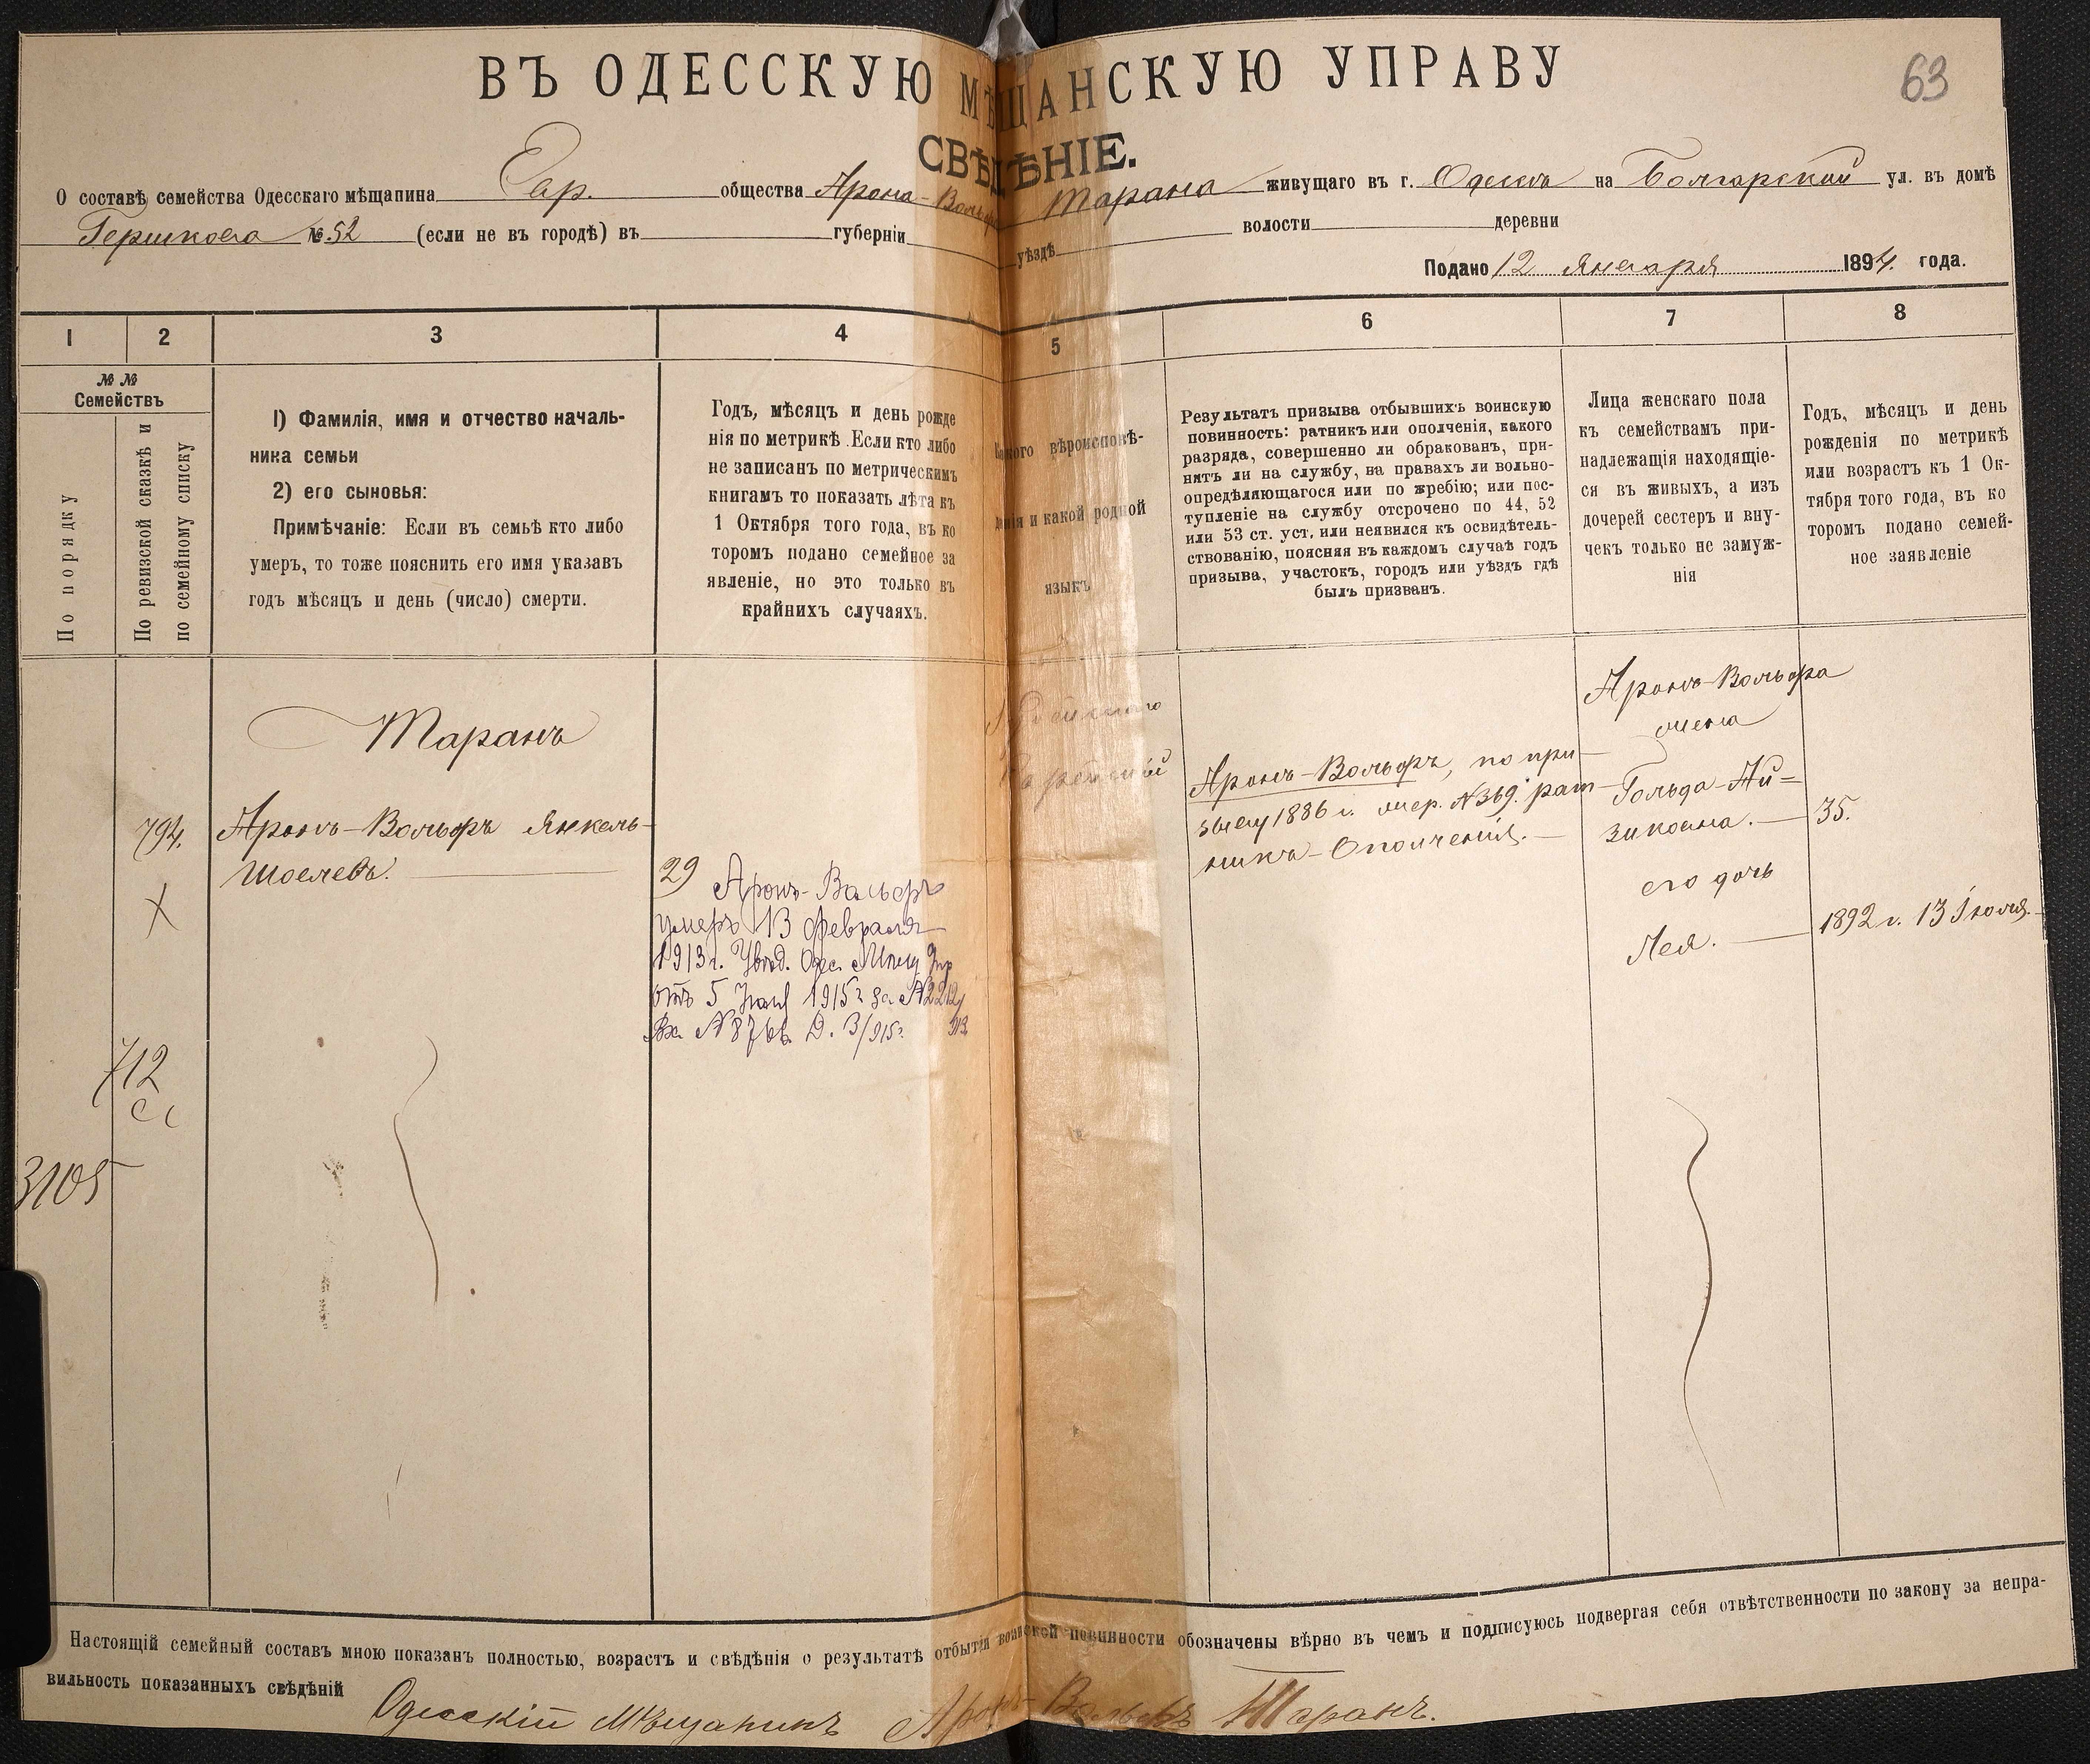 63
ВЪ ОДЕССКУЮ МѢЩАНСКУЮ УПРАВУ
СВѢДѢНІЕ.
О составѣ семейства Одесскаго мѣщанина Еар. общества Арона-Вольфа Тарана живущаго въ г. Одессѣ на Болгарской ул. въ домѣ
Гершкова № 52 (если не въ городѣ) въ губерніи уѣздѣ волости деревни
Подано 12 Января 1894. года.
1 2 3 4 5 6 7 8
№ №
Семействъ
По порядку
По ревизской сказкѣ и
по семейному списку
1) Фамилія, имя и отчество началь-
ника семьи
2) его сыновья:
Примѣчаніе: Если въ семьѣ кто либо
умеръ, то тоже пояснить его имя указавъ
годъ мѣсяцъ и день (число) смерти.
Годъ, мѣсяцъ и день рожде
нія по метрикѣ. Если кто либо
не записанъ по метрическимъ
книгамъ то показать лѣта къ
1 Октября того года, въ ко
торомъ подано семейное за
явленіе, но это только въ
крайнихъ случаяхъ.
Какого вѣроисповѣ-
данія и какой родной
языкъ
Результатъ призыва отбывшихъ воинскую
повинность: ратникъ или ополченія, какого
разряда, совершенно ли обракованъ, при-
нятъ ли на службу, на правахъ ли вольно-
опредѣляющагося или по жребію; или пос-
тупленіе на службу отсрочено по 44, 52
или 53 ст. уст. или неявился къ освидѣтель-
ствованію, поясняя въ каждомъ случаѣ годъ
призыва, участокъ, городъ или уѣздъ гдѣ
былъ призванъ.
Лица женскаго пола
къ семействамъ при-
надлежащія находящіе-
ся въ живыхъ, а изъ
дочерей сестеръ и вну-
чекъ только не замуж-
нія
Годъ, мѣсяцъ и день
рожденія по метрикѣ
или возрастъ къ 1 Ок-
тября того года, въ ко
торомъ подано семей-
ное заявленіе
Таранъ
794. Аронъ-Вольфъ Янкель-
Шоелевъ.
X
712
3105
29
Аронъ-Вольфъ
умеръ 13 февраля
1913 г. Увѣд. Одес. Мѣщ. Упр
отъ 5 1915 г за № 2212/
Вх № 8766 Д. 3/915 г. 913
Іудейскаго
Еврейскій
Аронъ-Вольфъ, по при-
зыву 1886 г. жер. № 369. рат-
никъ-Ополченія.
Аронъ-Вольфа
жена
Гольда-Ай-
зикова. 35.
его дочь
Лея. 1892 г. 13 Іюля.
Настоящій семейный составъ мною показанъ полностью, возрастъ и свѣдѣнія о результатѣ отбытія воинской повинности обозначены вѣрно въ чемъ и подписуюсь подвергая себя отвѣтственности по закону за непра-
вильность показанныхъ свѣдѣній
Одесскій Мѣщанинъ Аронъ-Вольфъ Таранъ.